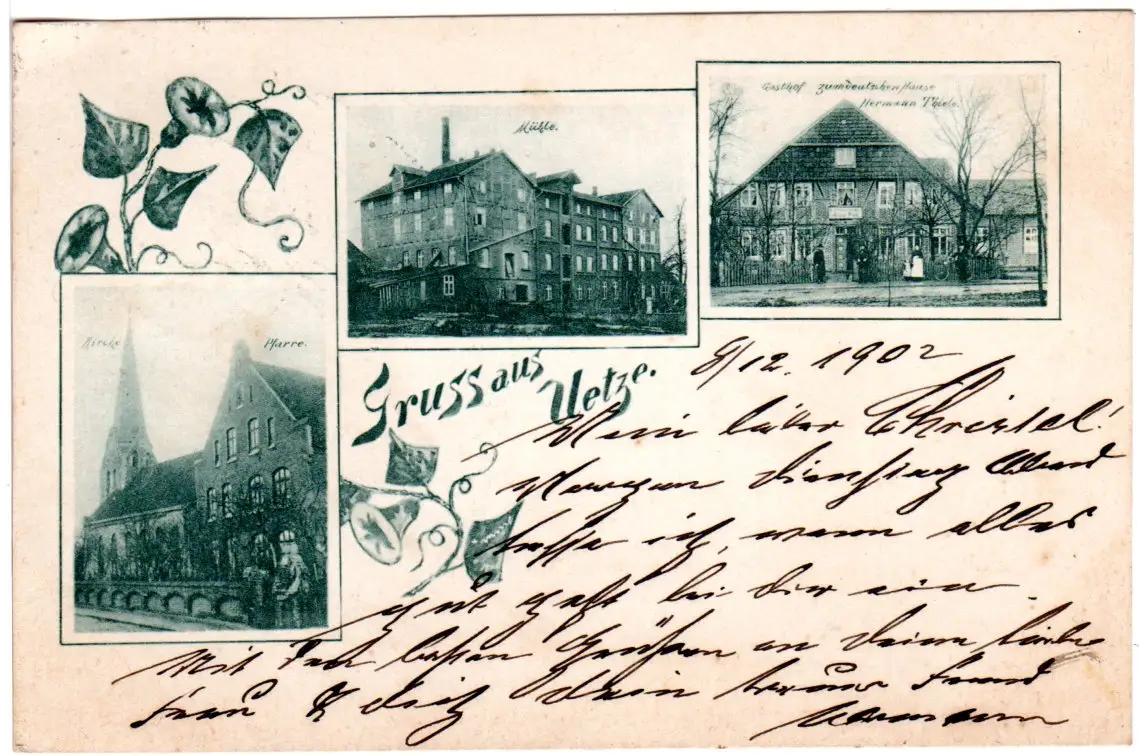 Mühle.
Gasthof zum deutschen Hause
Hermann Thiele.
Kirche
Pfarre.
Gruss aus
Uetze.
8/12. 1902
Mein lieber Christel!
Morgen Dienstag Abend
treffe ich, wenn alles
gut geht bei Dir ein.
Mit den besten Grüßen an Deine liebe
Frau & Dich Dein treuer Freund
Hermann